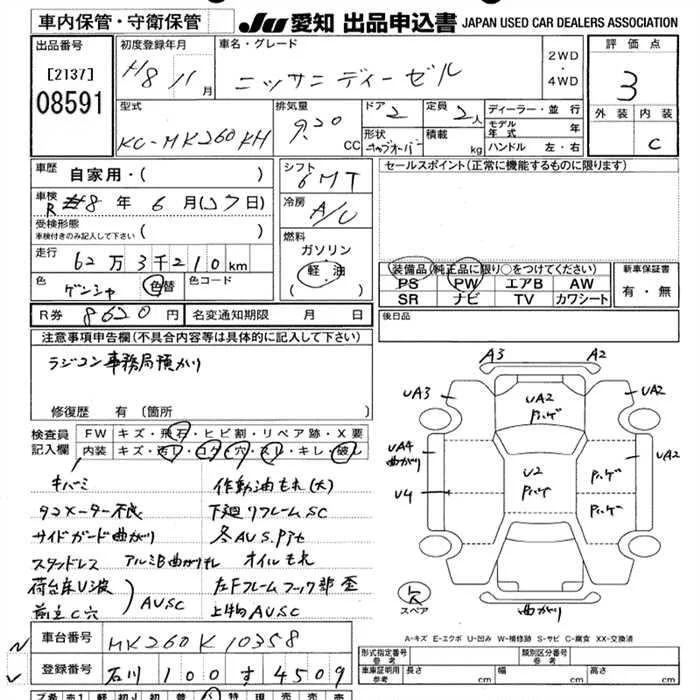 車内保管・守衛保管
JU 愛知 出品申込書 JAPAN USED CAR DEALERS ASSOCIATION
出品番号
[2137]
08591
初度登録年月
H8 11月
車名・グレード
ニッサンディーゼル
2WD
・
4WD
評価点
3
外装 内装
C
型式
KC-MK260KH
排気量
9.20 CC
ドア 2
定員 2人
形状
積載 kg
ディーラー・並行
モデル年式 年
ハンドル 左・右
車歴
自家用・( )
車検
R 8年 6月(27日)
受検形態
車検付きのみ記入して下さい ( )
走行
62万3千210km
色
ゲンシャ 色替
色コード
シフト
6MT
冷房
A/C
燃料
ガソリン
・
軽油
セールスポイント(正常に機能するものに限ります)
装備品(純正品に限り○をつけてください)
PS PW エアB AW
SR ナビ TV カワシート
新車保証書
有・無
後日品
R券 8620円
名変通知期限 月 日
注意事項申告欄(不具合内容等は具体的に記入して下さい)
ラジコン事務局預かり
修復歴 有(箇所 )
検査員記入欄
FW キズ・飛石・ヒビ割・リペア跡・X要
内装 キズ・汚レ・コゲ・穴・スレ・キレ・破レ
キバミ
作動油もれ(大)
タコメーター不良
下廻リフレームSC
サイドガード曲がり
各AU S.Pアセ
スタッドレス アルミB曲がり
オイルもれ
荷台床U波
前立C穴
AUSC
左Fフレームフック部歪
上物AUSC
A3 A2
UA3 UA2 UA2
Pハゲ
UA4 曲がり
U2 Pハゲ
Pハゲ
UA2
U4
Pハゲ
欠
スペア
曲がり
A-キズ E-エクボ U-凹み W-補修跡 S-サビ C-腐食 XX-交換済
車台番号
MK260K10358
登録番号
石川 100 す 4509
形式指定番号
参考
類別区分番号
参考
車庫証明用
参考
長さ cm 幅 cm 高さ cm